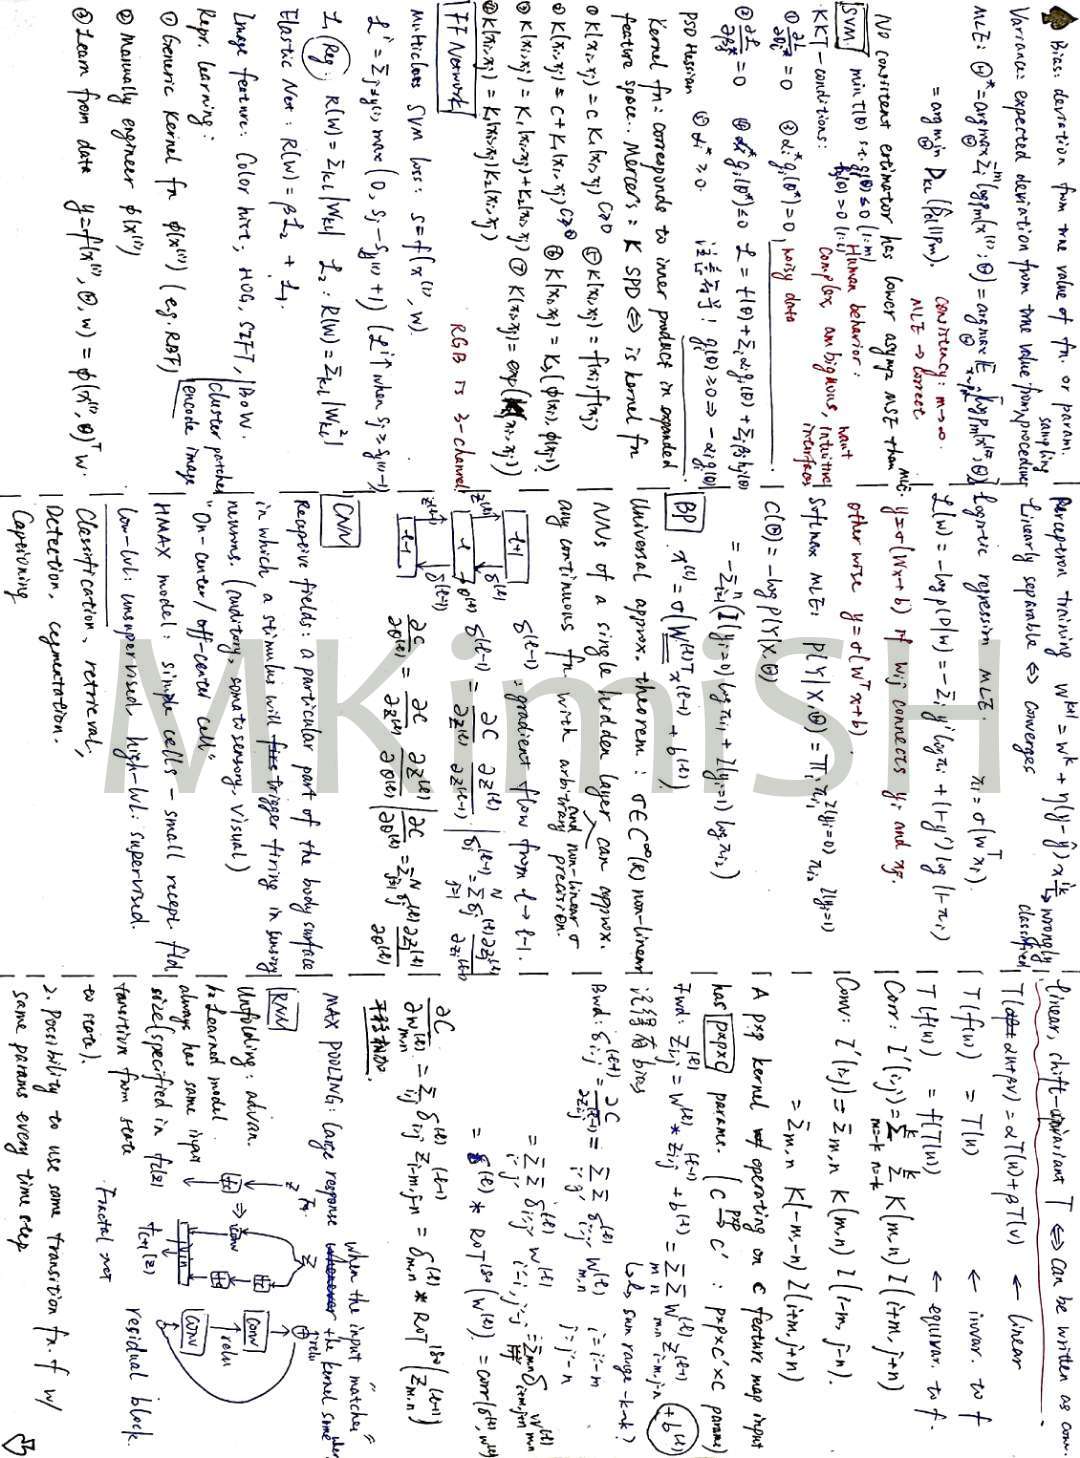 Bias: deviation from true value of fn. or param.
sampling
Variance: expected deviation from true value from procedure
MLE: Θ* = argmax_Θ Σ_i^m log p_m(x^(i); Θ) = argmax_Θ E_{x~p̂_d}[log p_m(x^(i); Θ)]
= argmin_Θ D_KL(p̂_d || p_m).
Consistency: m→∞.
MLE → correct
No consistent estimator has lower asymp MSE than MLE.
SVM
min f(θ) s.t. g_i(θ) ≤ 0 (1:m)
Human behavior:
Complex, ambiguous, want intuitive interfaces
noisy data
KKT-conditions:
① ∂L/∂θ_i* = 0 ③ α_i* g_i(θ*) = 0
② ∂L/∂β_j* = 0 ④ g_i(θ*) ≤ 0 L = f(θ) + Σ_i α_i g_i(θ) + Σ_j β_j h_j(θ)
PSD Hessian ⑤ α_i* ≥ 0. 注意符号! g_i(θ) ≥ 0 ⇒ -α_i g_i(θ)
Kernel fn: corresponds to inner product in expanded
feature space.. Mercer's: K SPD ⇔ is kernel fn
① K(x_i, x_j) = c K_1(x_i, x_j) c≥0 ⑤ K(x_i, x_j) = f(x_i) f(x_j)
② K(x_i, x_j) = c + K_1(x_i, x_j) c≥0 ⑥ K(x_i, x_j) = K_3(ϕ(x_i), ϕ(x_j))
③ K(x_i, x_j) = K_1(x_i, x_j) + K_2(x_i, x_j) ⑦ K(x_i, x_j) = exp(K(x_i, x_j))
④ K(x_i, x_j) = K_1(x_i, x_j) K_2(x_i, x_j)
FF Network
RGB is 3-channel
Multiclass SVM loss: s = f(x^(i), w).
L^i = Σ_{j≠y^(i)} max(0, s_j - s_{y^(i)} + 1) (L^i ↑ when s_j ≥ s_{y^(i)} - 1)
L_1 Reg. R(W) = Σ_{k,l} |W_kl| L_2: R(W) = Σ_{k,l} |W_kl²|
Elastic Net: R(W) = β L_2 + L_1.
Image feature: Color hist, HOG, SIFT, BoW.
cluster patches
encode image
Repr. learning:
① Generic Kernel fn ϕ(x^(i)) (e.g. RBF)
② Manually engineer ϕ(x^(i))
③ Learn from data y = f(x^(i), Θ, w) = ϕ(x^(i), Θ)^T w.
Perceptron training w^{k+1} = w^k + η(y - ŷ) x_{ik} → wrongly classified
Linearly separable ⇔ converges
Logistic regression MLE. π_i = σ(w^T x_i).
L(w) = -log p(D|w) = -Σ_i y^i log π_i + (1-y^i) log(1-π_i)
y = σ(Wx + b) if w_ij connects y_i and x_j.
otherwise y = σ(W^T x + b).
Softmax MLE: p(Y|X, Θ) = Π_i π_{i1}^{I(y_i=0)} π_{i2}^{I(y_i=1)}
C(Θ) = -log P(Y|X, Θ)
= -Σ_{i=1}^n (I(y_i=0) log π_{i1} + I(y_i=1) log π_{i2})
BP
x^(l) = σ(W^(l)T x^(l-1) + b^(l)).
Universal approx. theorem: σ∈C^∞(R) non-linear
NNs of a single hidden layer can approx.
and non-linear σ
any continuous fn. with arbitrary precision.
l+1
l
l-1
z^(l)
δ^(l)
θ^(l)
z^(l-1)
δ^(l-1)
δ^(l-1): gradient flow from l → l-1.
δ^(l-1) = ∂C/∂z^(l) ∂z^(l)/∂z^(l-1) | δ_i^(l-1) = Σ_{j=1}^N δ_j^(l) ∂z_j^(l)/∂z_i^(l-1)
∂C/∂θ^(l) = ∂C/∂z^(l) ∂z^(l)/∂θ^(l) | ∂C/∂θ^(l) = Σ_{j=1}^N δ_j^(l) ∂z_j^(l)/∂θ^(l)
CNN
Receptive fields: a particular part of the body surface
in which a stimulus will trigger firing in sensory
neurons. (auditory, somatosensory, visual)
"On-center/off-center cell"
HMAX model: simple cells - small recept. fld.
low-lvl: unsupervised, high-lvl: supervised.
Classification, retrieval,
Detection, segmentation.
Captioning
Linear, shift-invariant T ⇔ can be written as conv.
T(αu+βv) = αT(u) + βT(v) ← linear
T(f(u)) = T(u) ← invar. to f
T(f(u)) = f(T(u)) ← equivar. to f.
Corr: I'(i,j) = Σ_{m=-k}^k Σ_{n=-k}^k K(m,n) I(i+m, j+n)
Conv: I'(i,j) = Σ_{m,n} K(m,n) I(i-m, j-n).
= Σ_{m,n} K(-m,-n) I(i+m, j+n)
A p×p kernel operating on C feature map input
has p×p×C params. (C →^{p×p} C' : p×p×C'×C params)
Fwd: z_{i,j}^(l) = W^(l) * z_{i,j}^(l-1) + b^(l) = Σ_m Σ_n W_{m,n}^(l) z_{i-m,j-n}^(l-1) + b^(l)
记得有bias
sum range -k~k?
Bwd: δ_{i,j}^(l-1) = ∂C/∂z_{i,j}^(l-1) = Σ_{i'} Σ_{j'} δ_{i',j'}^(l) W_{m,n}^(l) i = i'-m
j = j'-n
= Σ_{i'} Σ_{j'} δ_{i',j'}^(l) W_{i'-i, j'-j}^(l) = Σ_{mn} δ_{i+m,j+n} W_{m,n}^(l)
= δ^(l) * ROT180(W^(l)). = corr(δ^(l), W^(l))
∂C/∂w_{m,n}^(l) = Σ_{i,j} δ_{i,j}^(l) z_{i-m,j-n}^(l-1) = δ_{m,n}^(l) * ROT180(z_{m,n}^(l-1))
平移相加.
when the input "matches"
MAX POOLING: large response the kernel somewhere
RNN
Unfolding: advan.
1. Learned model
always has same input
size (specified in
transition from state
to state).
z
f_c
f_c(z)
z
conv
f_c
f_c
join
f_{c+1}(z)
Fractal net
relu
conv
relu
conv
residual block.
2. Possibility to use same transition fn. f w/
same params every time step
MKimiSH